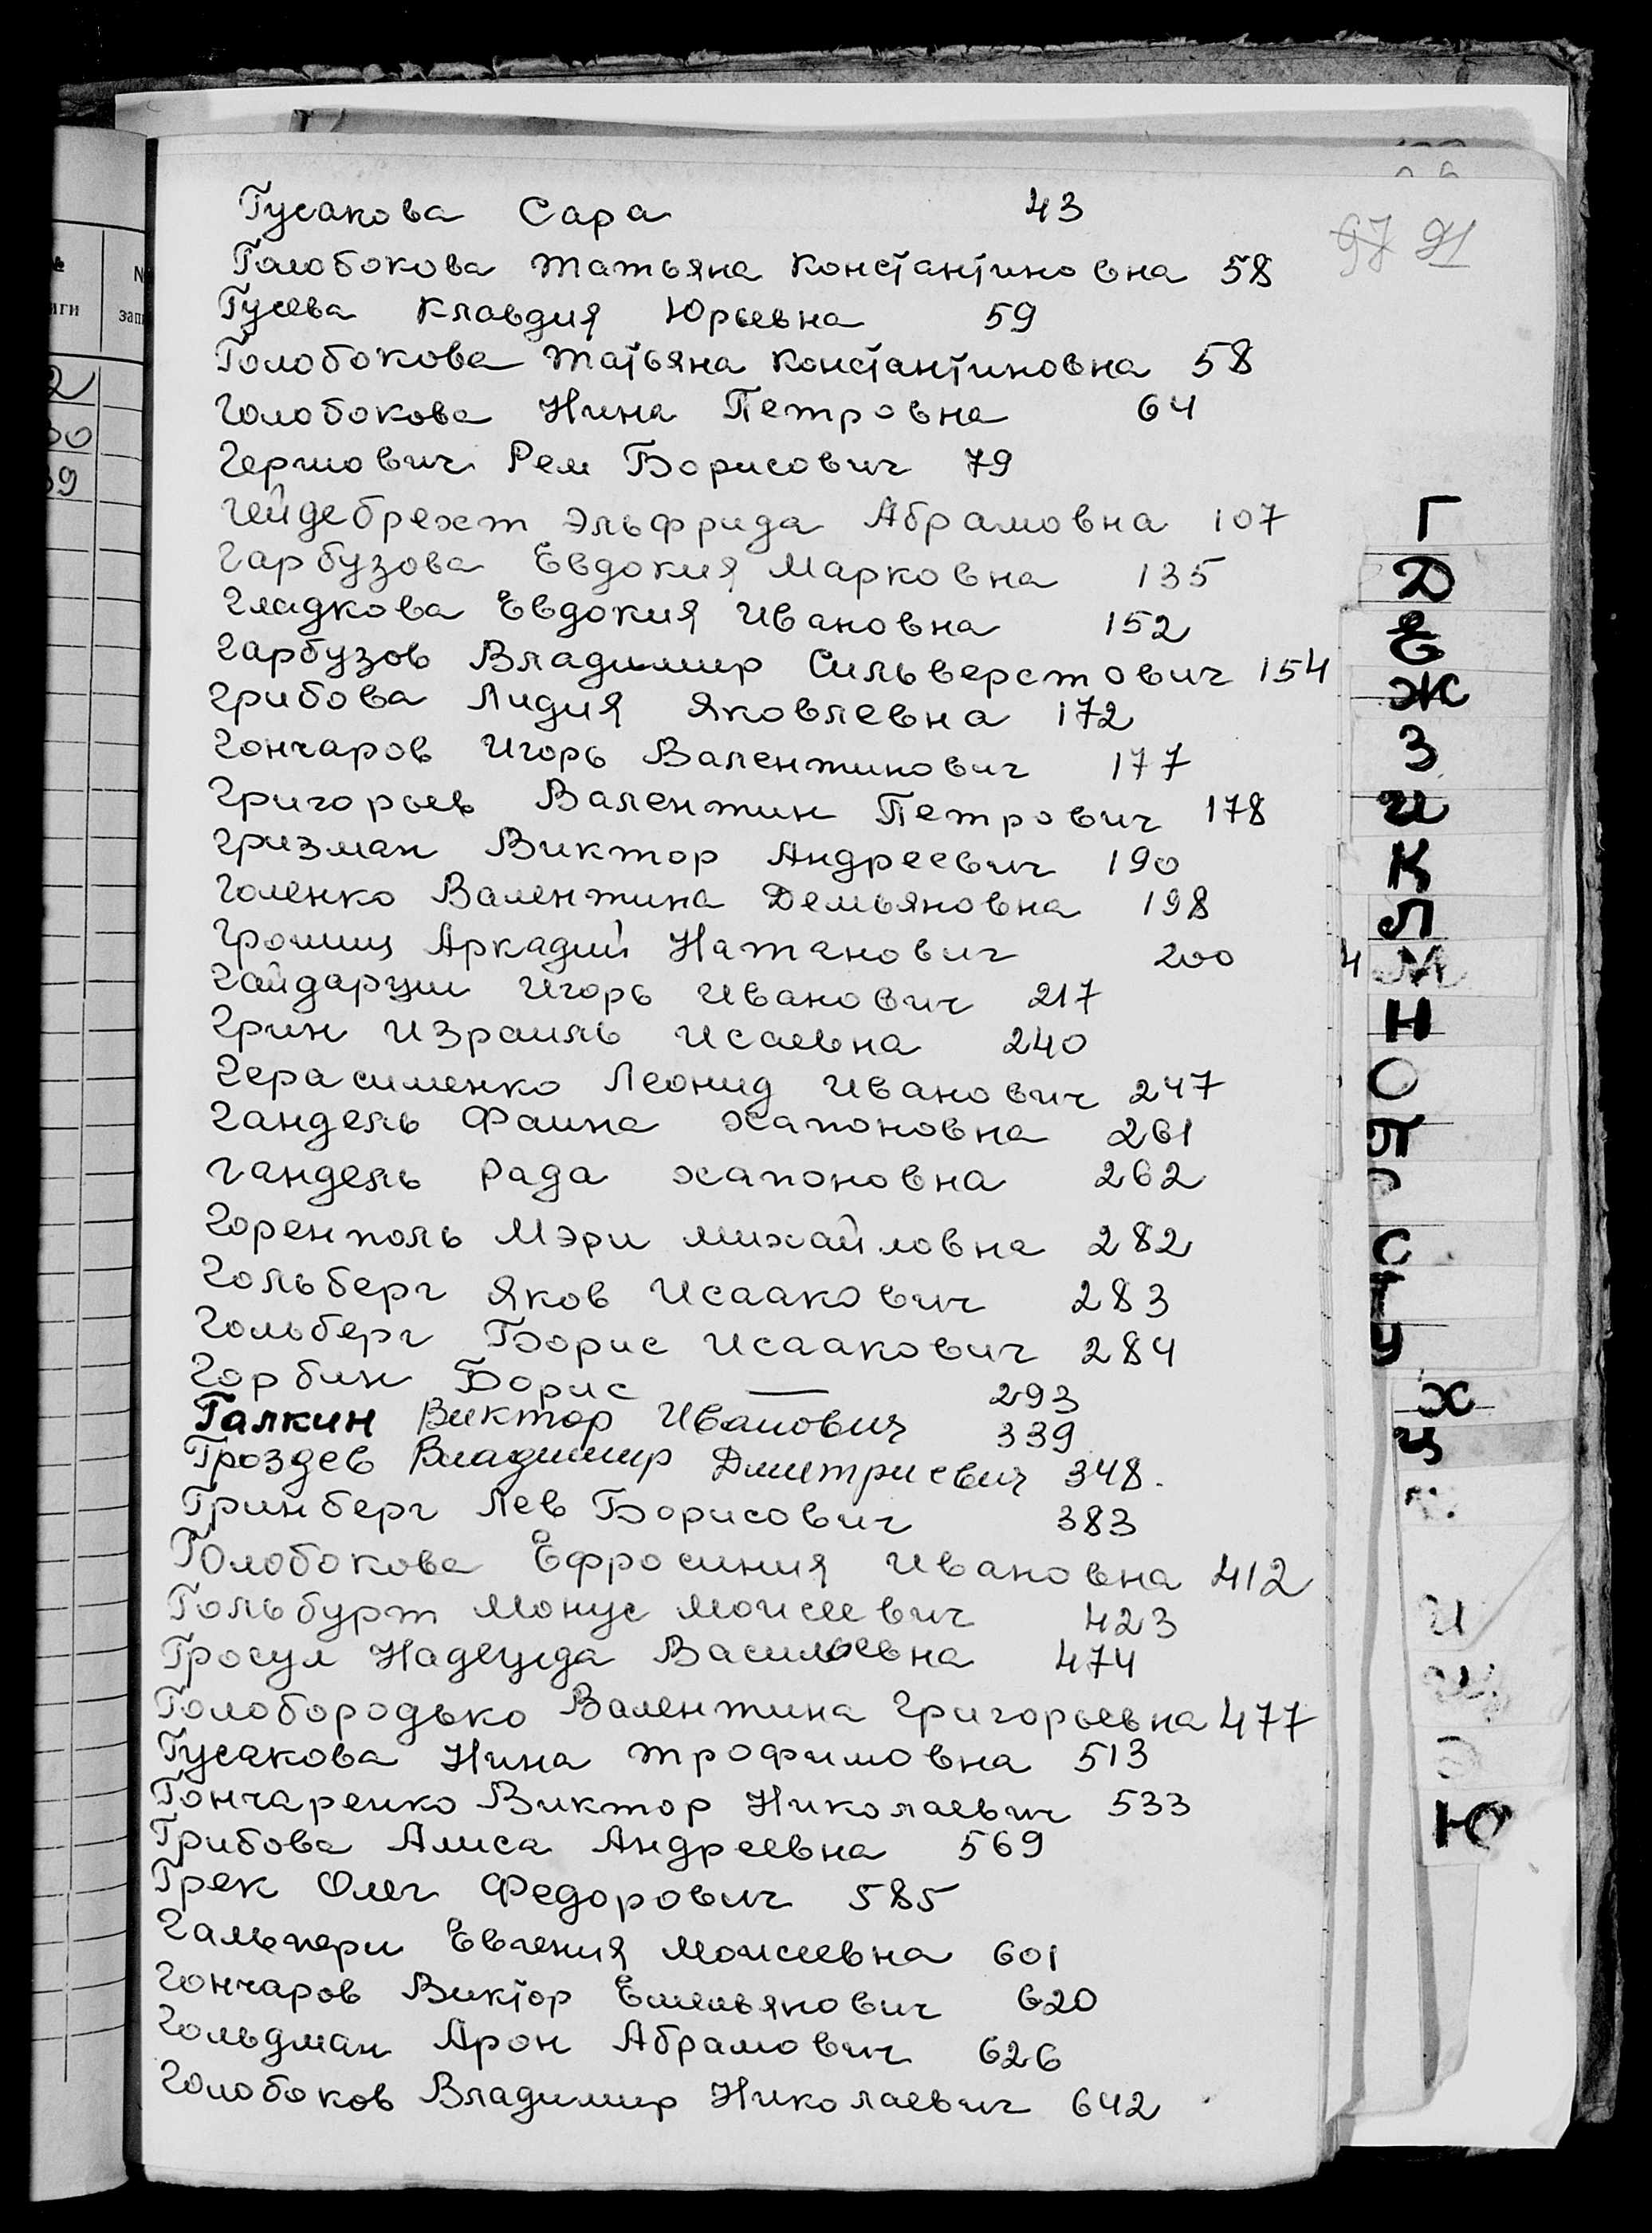 Гусакова Сара 43
97 91
Голобокова Татьяна Константиновна 58
Гусева Клавдия Юрьевна 59
Голобокова Татьяна Константиновна 58
Голобокова Нина Петровна 64
Гершович Рем Борисович 79
Гейдебрехт Эльфрида Абрамовна 107
Гарбузова Евдокия Марковна 135
Гладкова Евдокия Ивановна 152
Гарбузов Владимир Сильверстович 154
Грибова Лидия Яковлевна 172
Гончаров Игорь Валентинович 177
Григорьев Валентин Петрович 178
Гризман Виктор Андреевич 190
Голенко Валентина Демьяновна 198
Аркадий Натанович 200
Гайдарджи Игорь Иванович 217
Грин Израиль Исаевна 240
Герасименко Леонид Иванович 247
Гандель Фаина Хапоновна 261
Гандель Рада Хапоновна 262
Горенполь Мэри Михайловна 282
Гольберг Яков Исаакович 283
Гольберг Борис Исаакович 284
Горбин Борис — 293
Галкин Виктор Иванович 339
Гроздев Владимир Дмитриевич 348.
Гринберг Лев Борисович 383
Голобокова Ефросиния Ивановна 412
Гольбурт Монус Моисеевич 423
Гросул Надежда Васильевна 474
Голобородько Валентина Григорьевна 477
Гусакова Нина Трофимовна 513
Гончаренко Виктор Николаевич 533
Грибова Алиса Андреевна 569
Грек Олег Федорович 585
Гальпери Евгения Моисеевна 601
Гончаров Виктор Емельянович 620
Гольдман Арон Абрамович 626
Голобоков Владимир Николаевич 642
Г
Д
Е
Ж
З
И
К
Л
М
Н
О
П
Р
С
Т
У
Х
Ц
Ч
Э
Ю